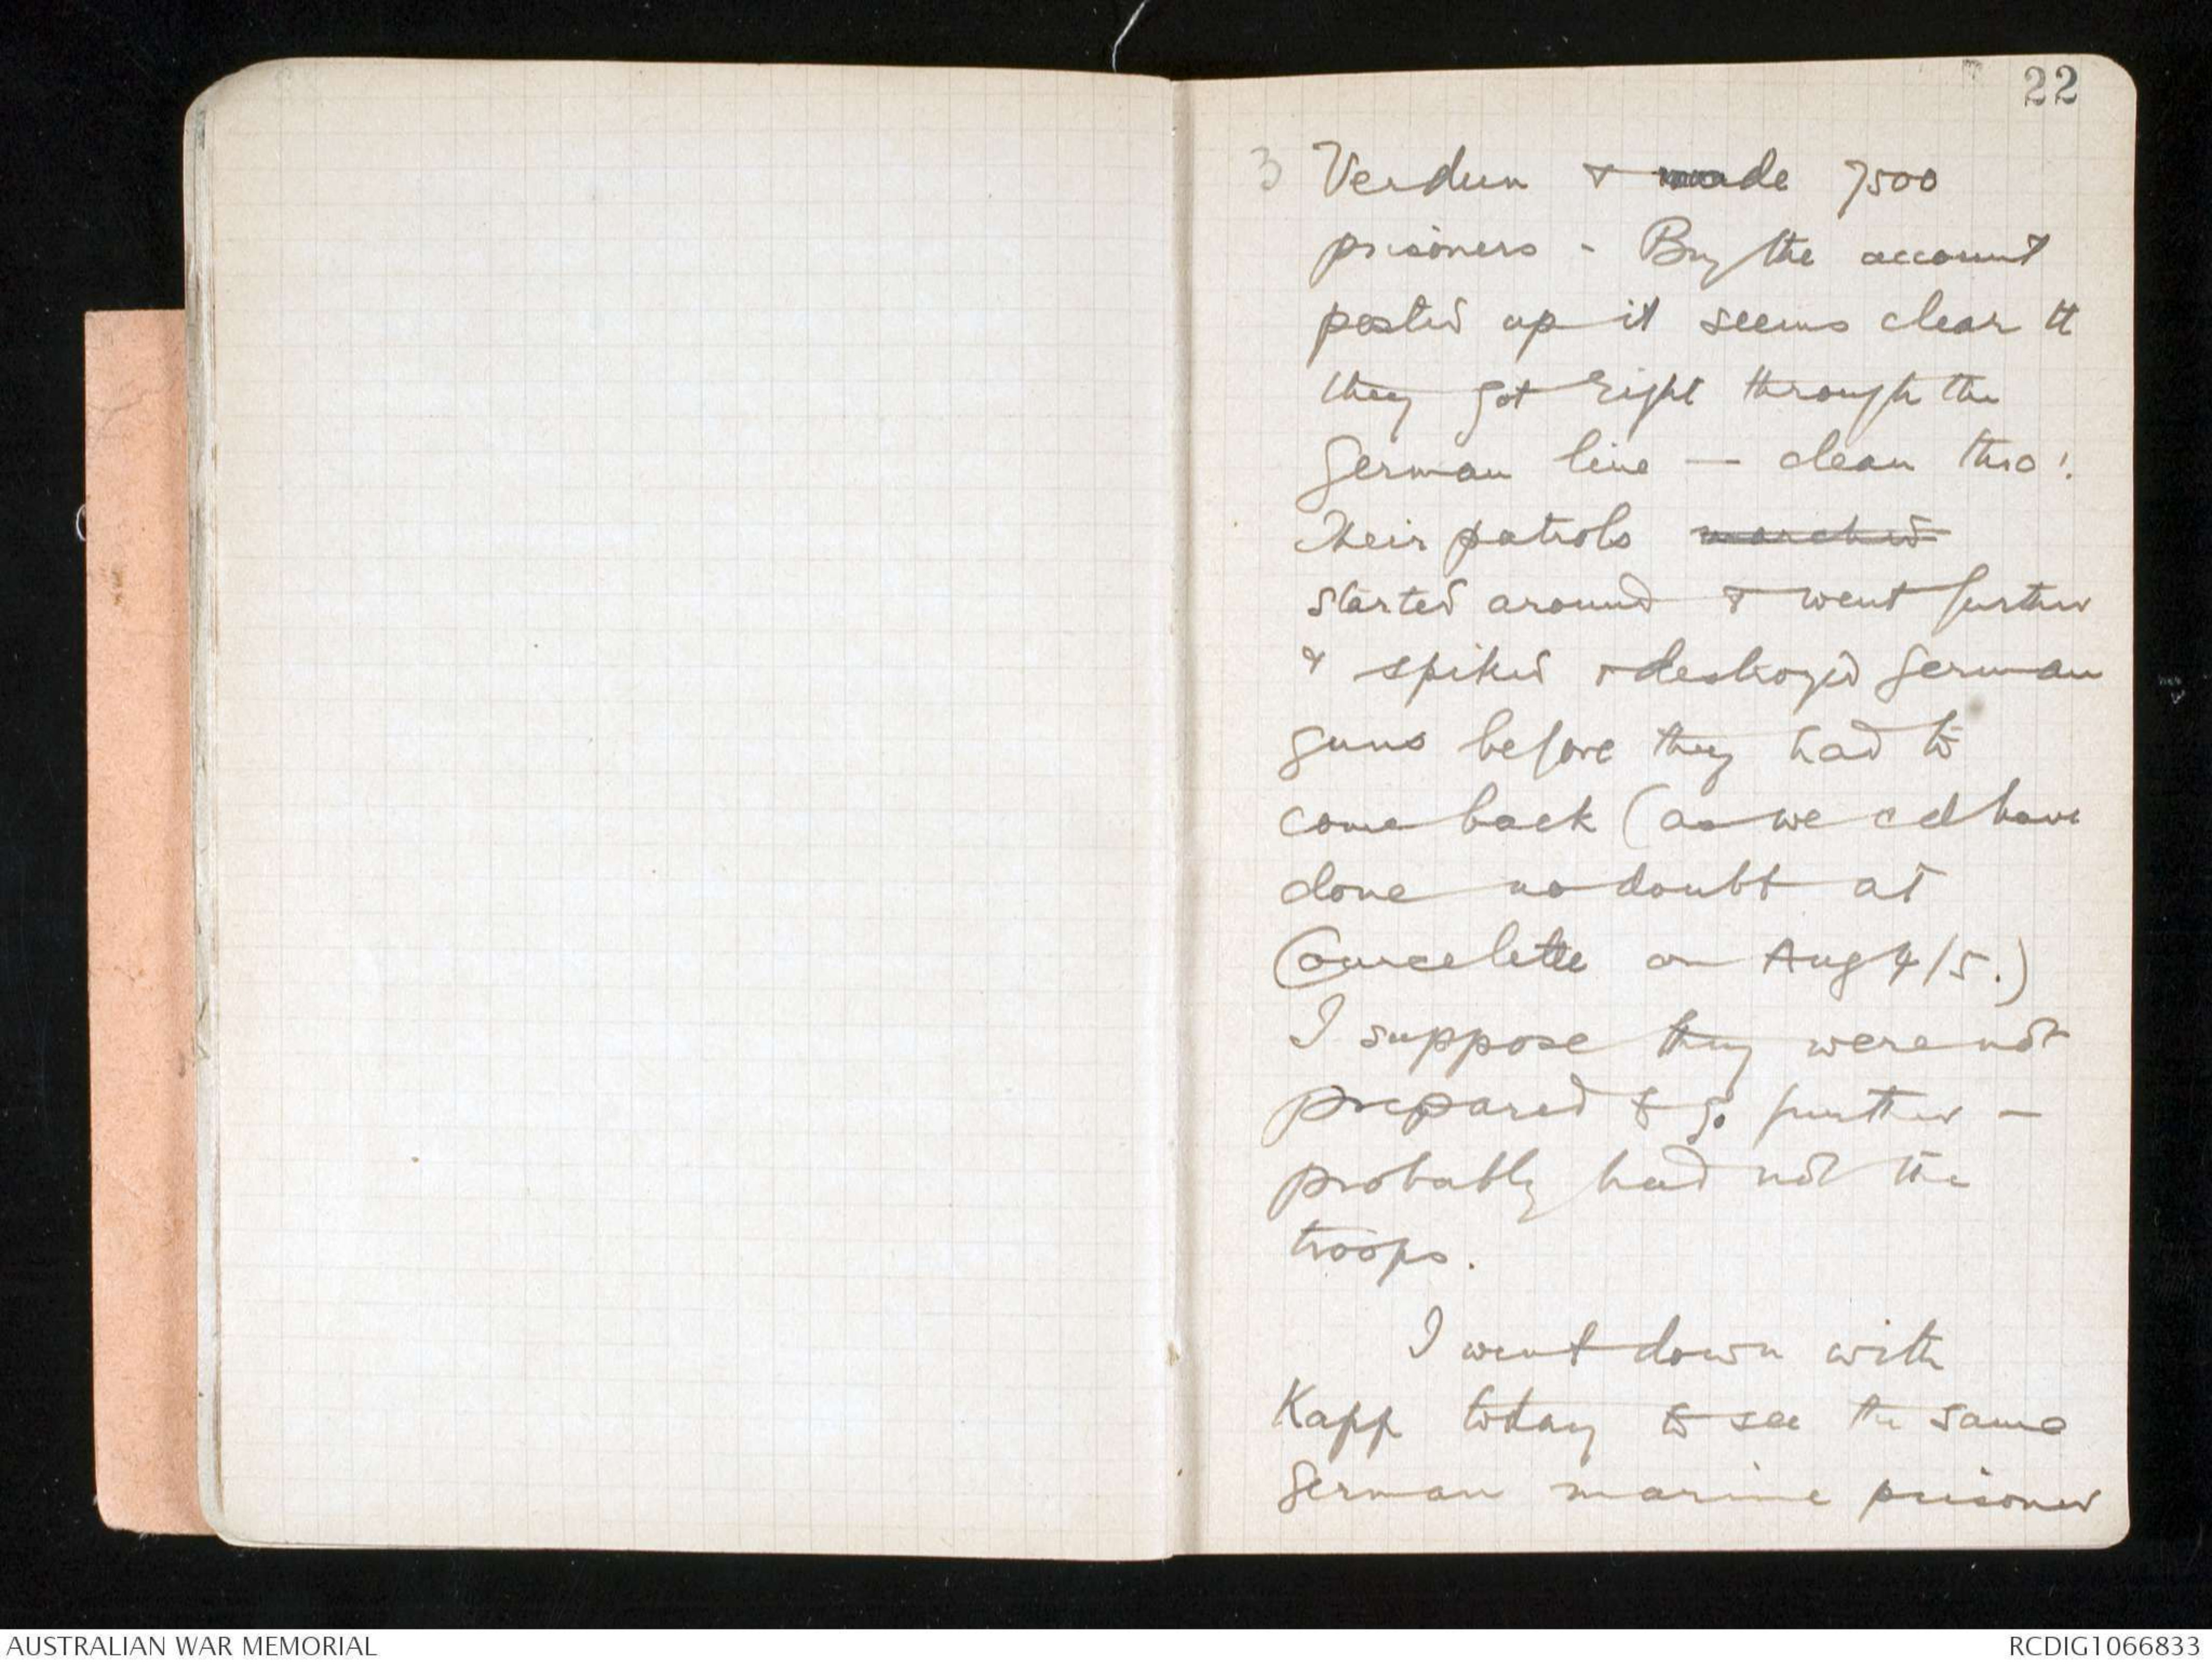 22
3 Verdun & made 7500
prisoners - By the account
posted up it seems clear tt
they got right through the
German line — clean thro'.
Their patrols marched
started around & went further
& spiked & destroyed German
guns before they had to
come back (as we cd have
done no doubt at
Courcelette on Aug 4/5.)
I suppose they were not
prepared to go further —
probably had not the
troops.
I went down with
Kapp today to see the same
German marine prisoner
AUSTRALIAN WAR MEMORIAL
RCDIG1066833